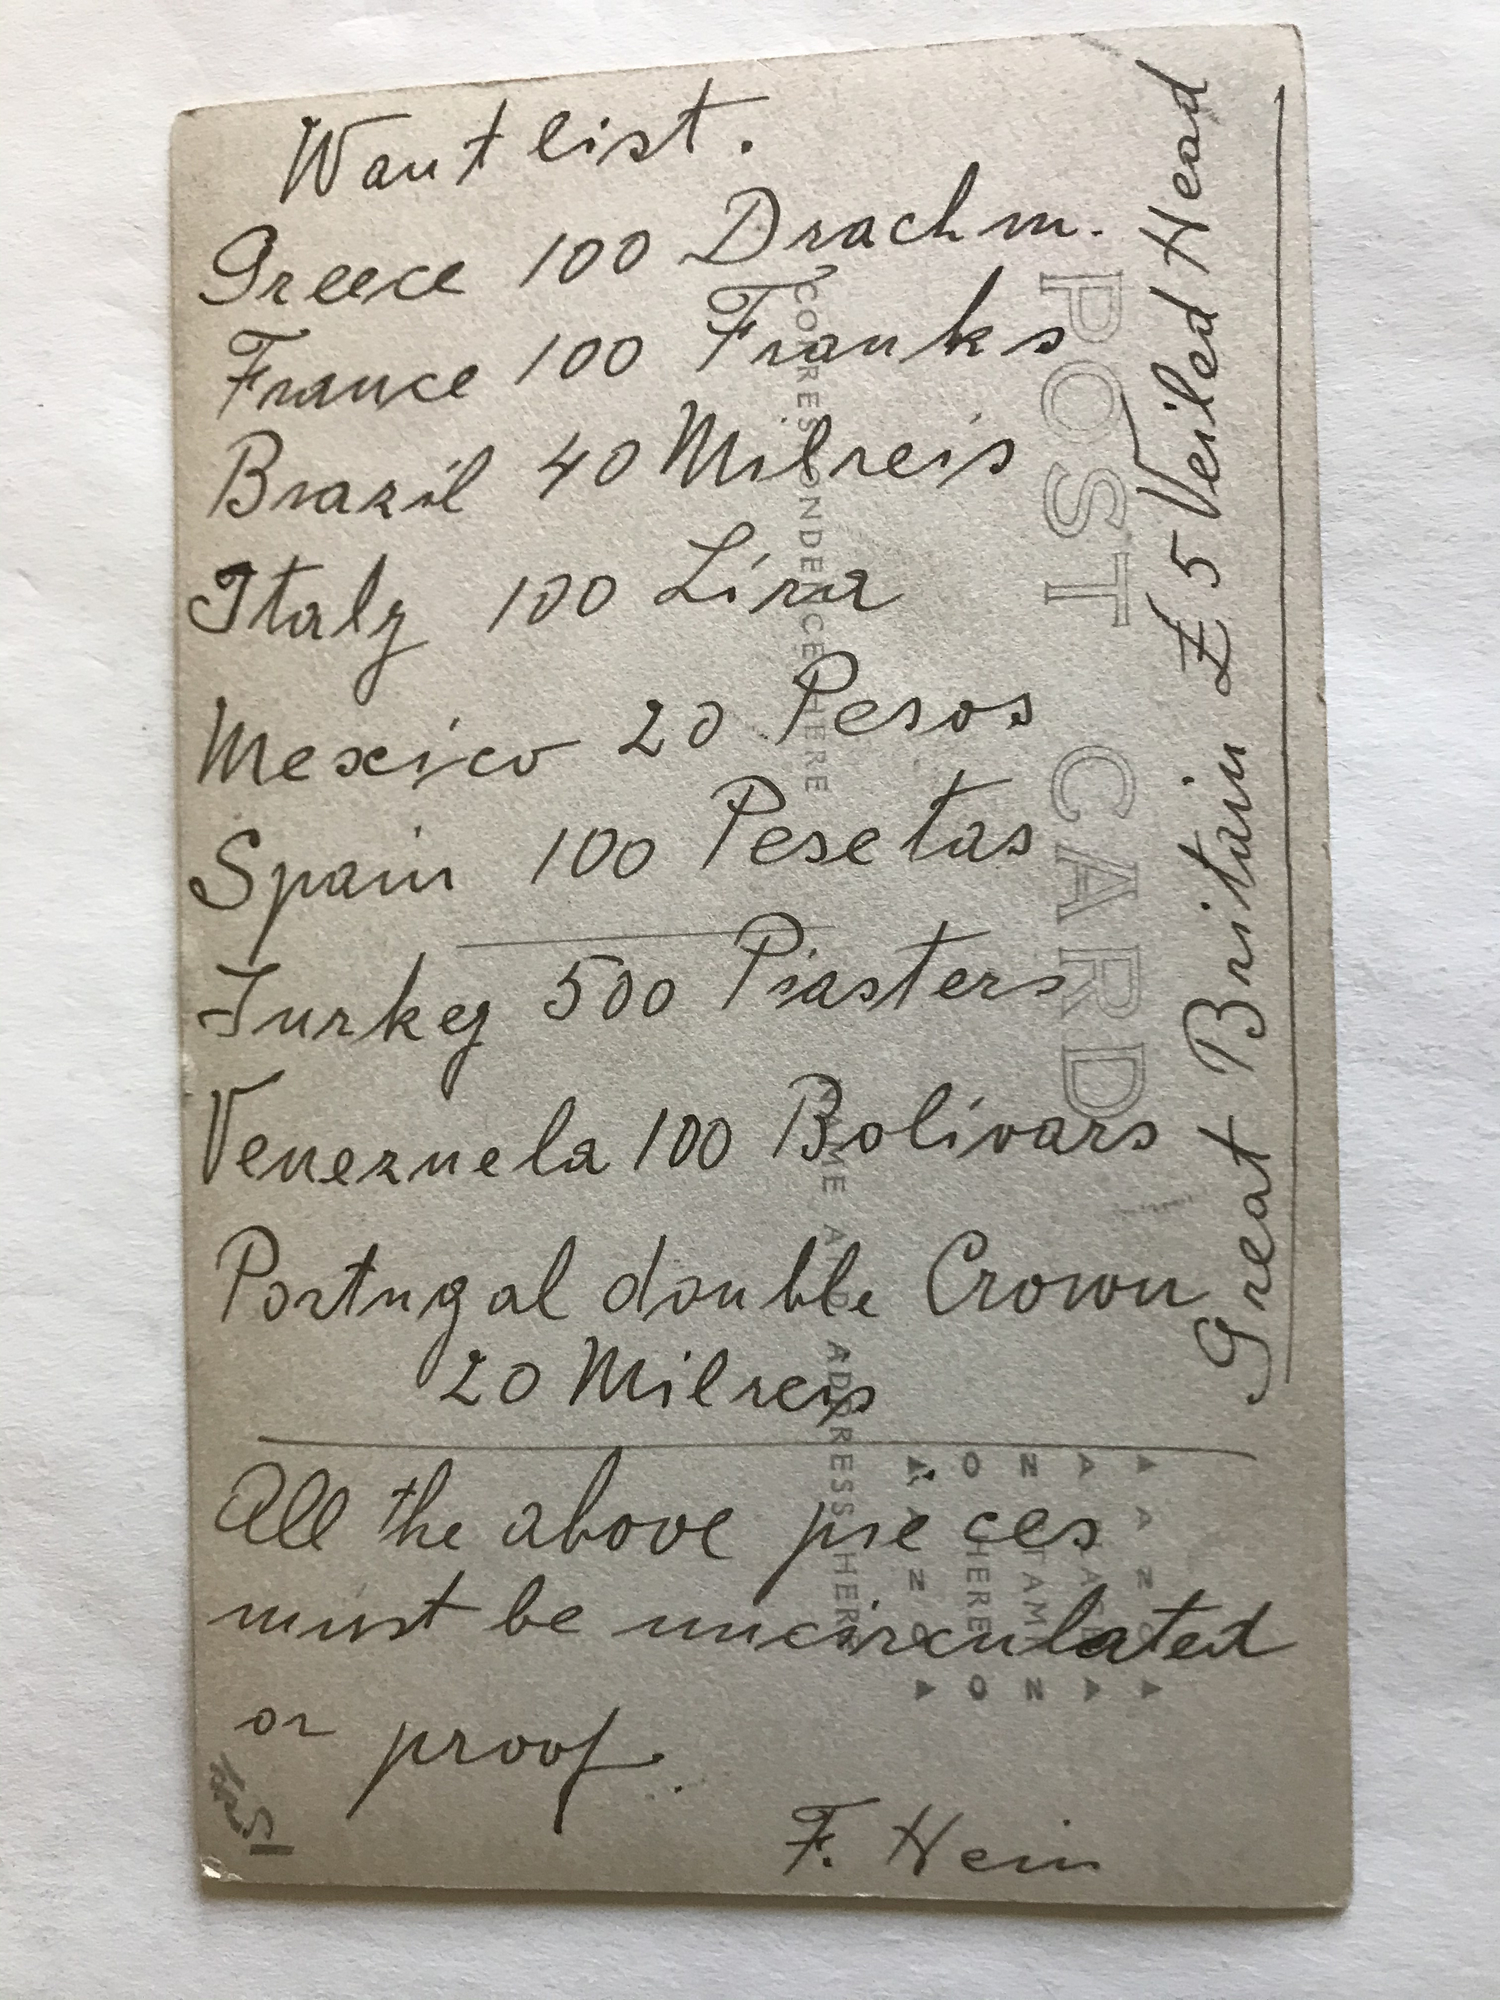 Want list.
Greece 100 Drachm.
France 100 Franks
Brazil 40 Milreis
Italy 100 Lira
Mexico 20 Pesos
Spain 100 Pesetas
Turkey 500 Piasters
Venezuela 100 Bolivars
Portugal double Crown
20 Milreis
All the above pieces
must be uncirculated
or proof.
F. Hein
Great Britain £5 Veiled Head
POST CARD
CORRESPONDENCE HERE
NAME AND ADDRESS HERE
AZO
PLACE
STAMP
HERE
AZO